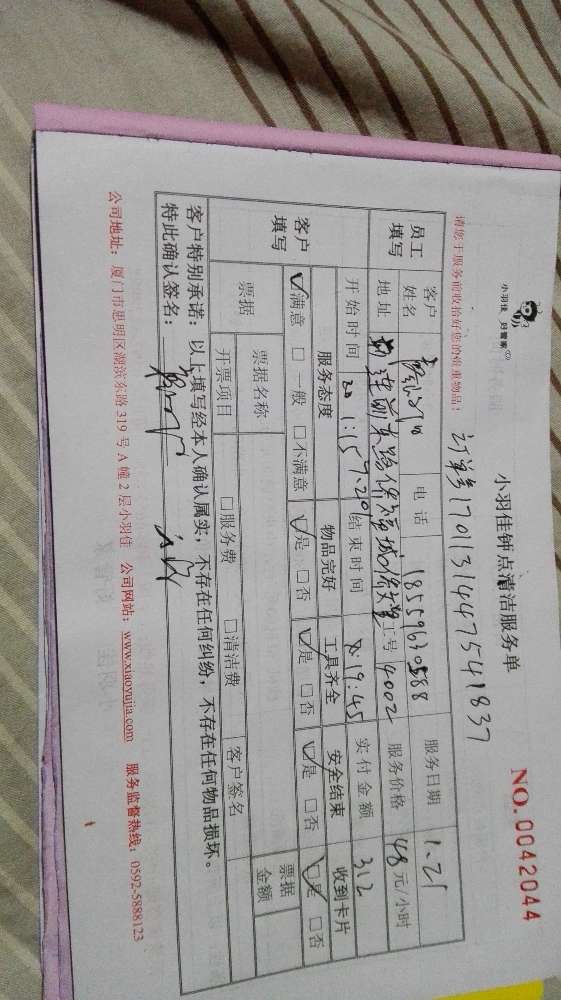 小羽佳 好管家
小羽佳钟点清洁服务单
NO.0042044
请您于服务前收拾好您的贵重物品!
订单号1701131447541837
员工填写
客户姓名 电话 18559630588 服务日期 1.21
地址 工号 4002 服务价格 48元/小时
开始时间 结束时间 19:45 实付金额 312
客户填写
服务态度 物品完好 工具齐全 安全结束 收到卡片
☑满意 □一般 □不满意 ☑是 □否 ☑是 □否 ☑是 □否 ☑是 □否
票据 票据名称 客户签名 票据金额
开票项目 □服务费 □清洁费
客户特别承诺:以上填写经本人确认属实,不存在任何纠纷,不存在任何物品损坏。
特此确认签名:
公司地址:厦门市思明区湖滨东路319号A幢2层小羽佳 公司网站:www.xiaoyujia.com 服务监督热线:0592-5888123